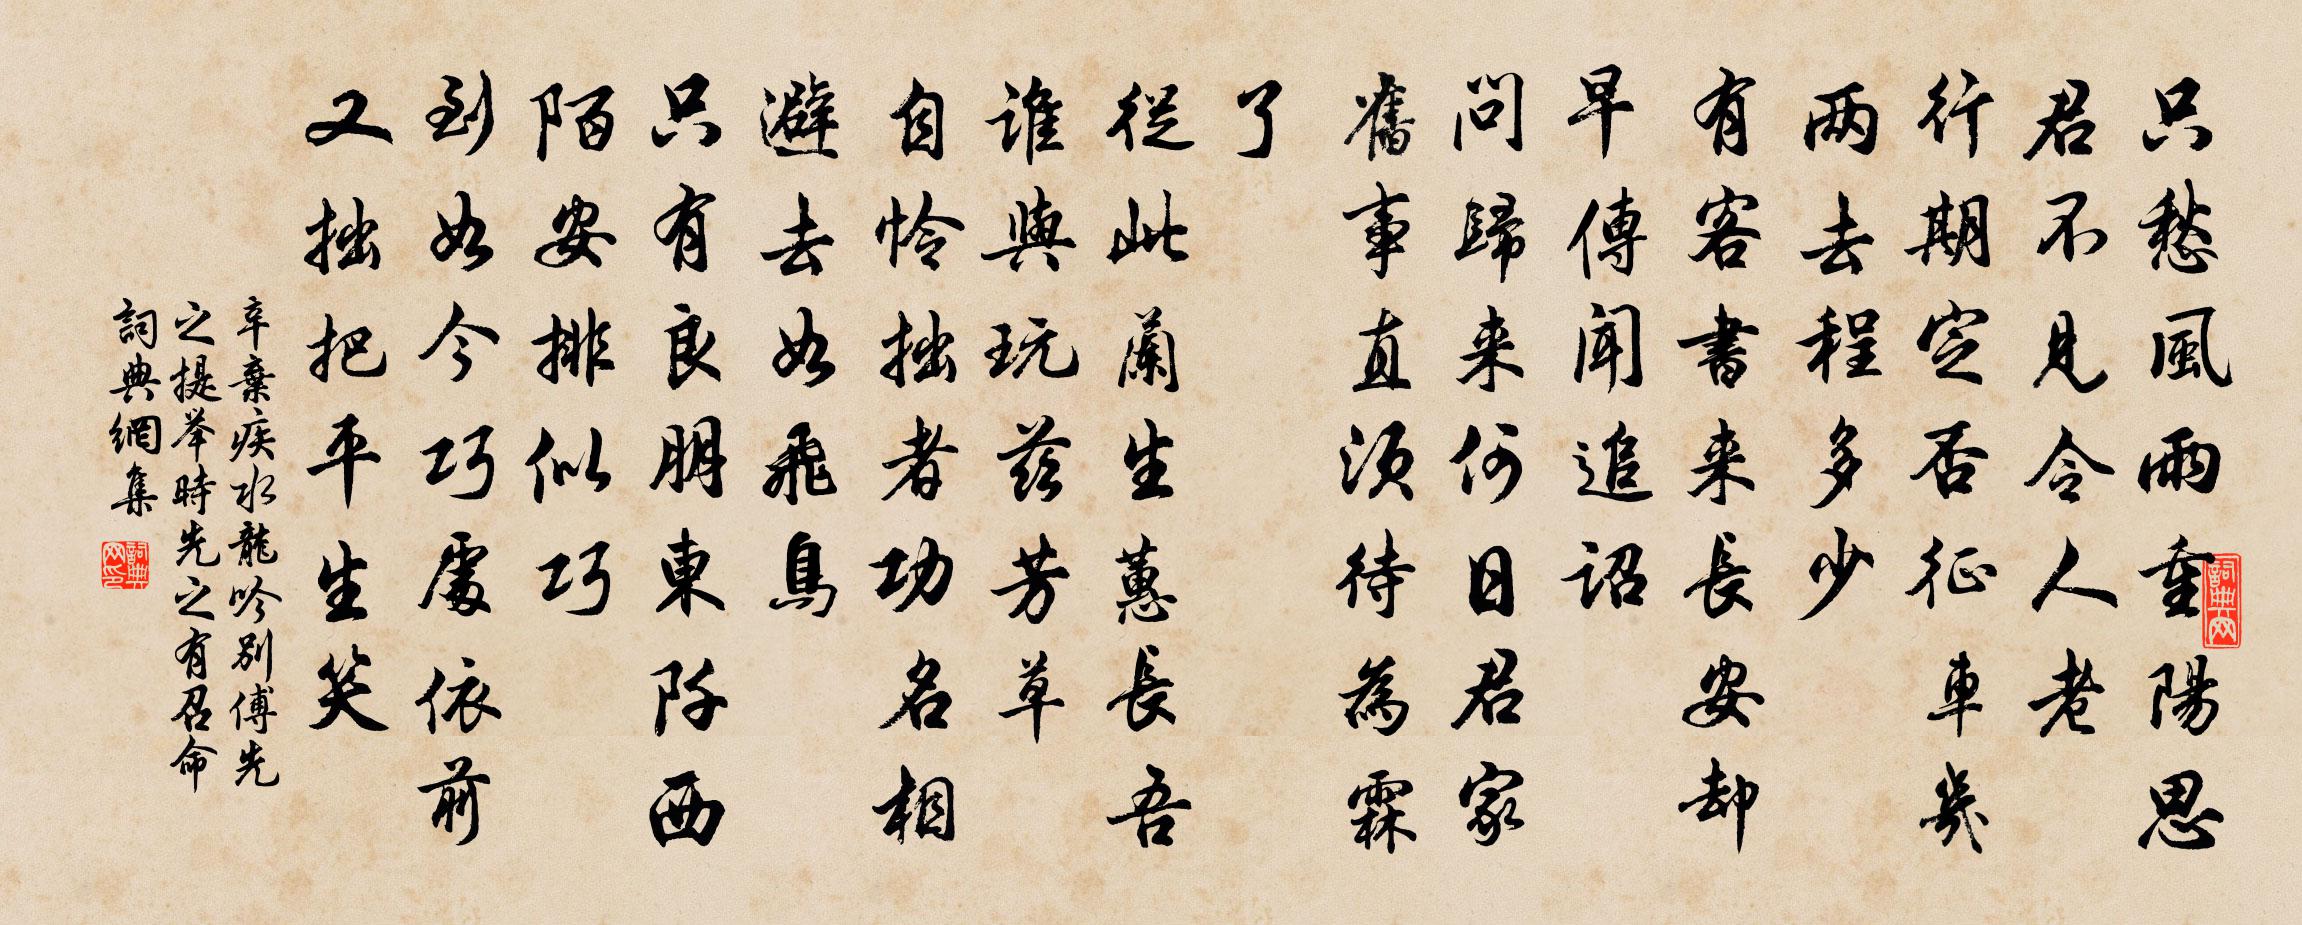 只愁風雨重陽思
君不見令人老
行期定否征車幾
兩去程多少
有客書来長安却
早傳聞追詔
問歸来何日君家
舊事直須待為霖
了
從此蘭生蕙長吾
誰與玩茲芳草
自怜拙者功名相
避去如飛鳥
只有良朋東阡西
陌安排似巧
到如今巧處依前
又拙把平生笑
辛棄疾水龍吟別傅先
之提举時先之有召命
詞典網集
詞典网
詞典网印